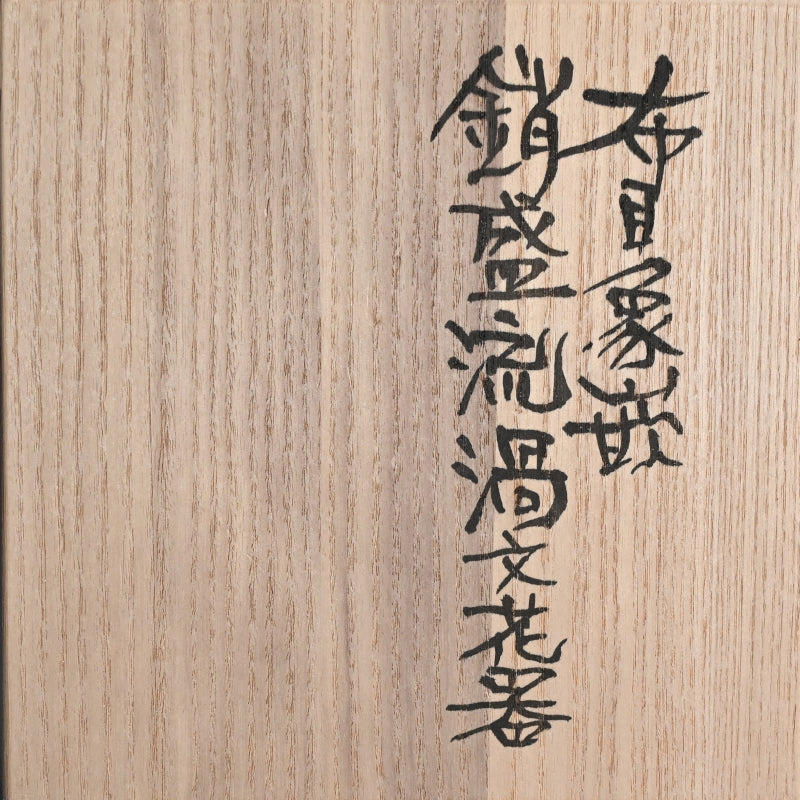 布目象嵌
銷盛流渦文花器